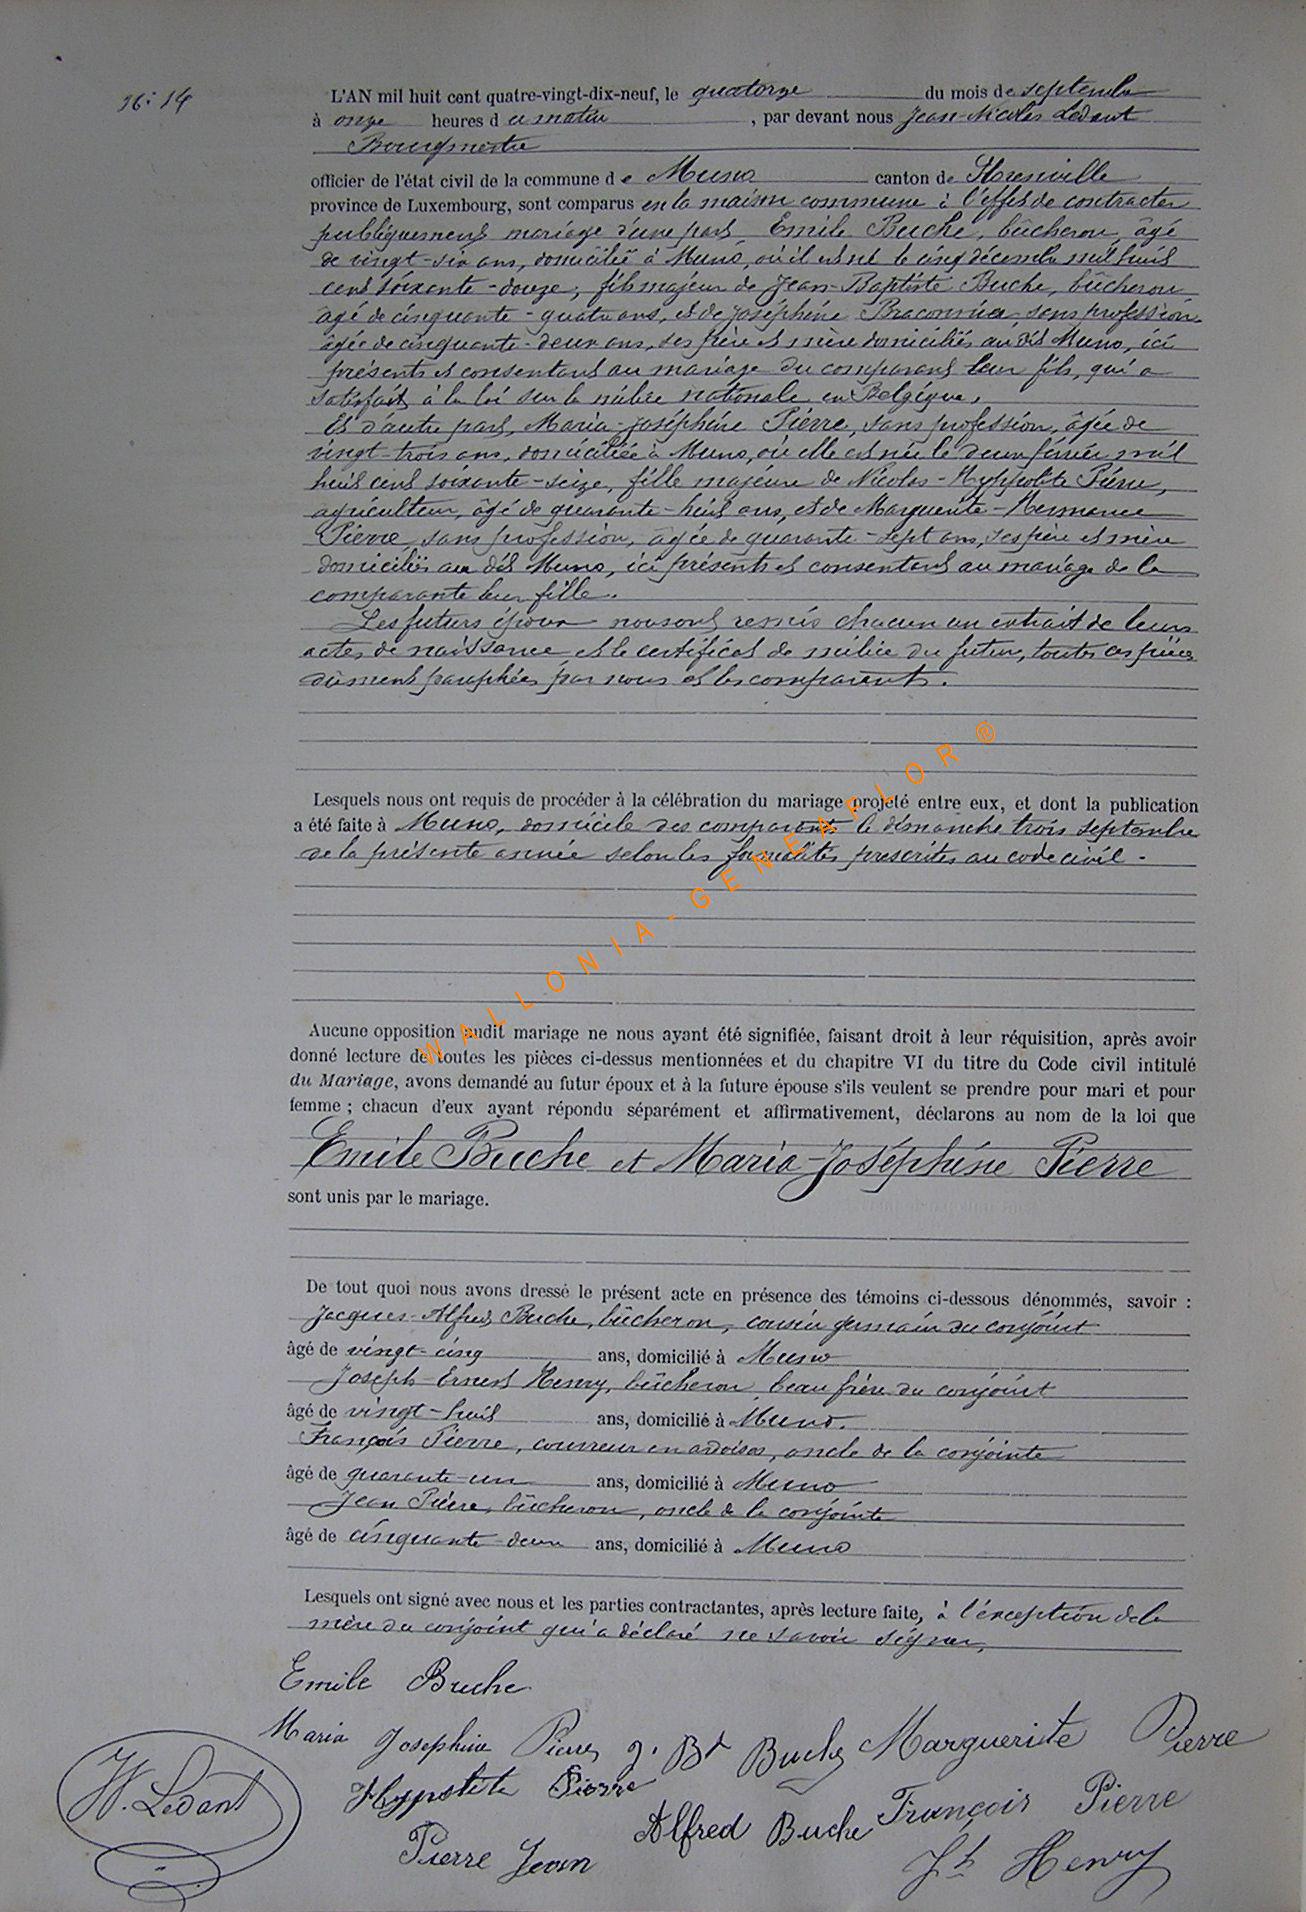 16: 14
L'AN mil huit cent quatre-vingt-dix-neuf, le quatorze du mois de septembre
à onze heures d u matin, par devant nous Jean-Nicolas Ledant
Bourgmestre
officier de l'état civil de la commune d e Muno canton de Florenville
province de Luxembourg, sont comparus en la maison commune à l'effet de contracter
publiquement mariage d'une part, Emile Buche, bûcheron, âgé
de vingt-six ans, domicilié à Muno, où il est né le cinq décembre mil huit
cent soixante-douze, fils majeur de Jean-Baptiste Buche, bûcheron
âgé de cinquante-quatre ans, et de Joséphine Braconnier, sans profession,
âgée de cinquante-deux ans, ses père et mère domiciliés au dit Muno, ici
présents et consentant au mariage du comparant leur fils, qui a
satisfait à la loi sur la milice nationale en Belgique,
Et d'autre part, Maria-Joséphine Pierre, sans profession, âgée de
vingt-trois ans, domiciliée à Muno, où elle est née le deux février mil
huit cent soixante-seize, fille majeure de Nicolas-Hyppolite Pierre,
agriculteur, âgé de quarante-huit ans, et de Marguerite-Hermance
Pierre, sans profession, âgée de quarante-sept ans, ses père et mère
domiciliés au dit Muno, ici présents et consentant au mariage de la
comparante leur fille.
Les futurs époux nous ont remis chacun un extrait de leurs
actes de naissance et le certificat de milice du futur, toutes ces pièces
dûment paraphées par nous et les comparants.
Lesquels nous ont requis de procéder à la célébration du mariage projeté entre eux, et dont la publication
a été faite à Muno, domicile des comparants le dimanche trois septembre
de la présente année selon les formalités prescrites au code civil.
WALLONIA-GENEAFLOR ®
Aucune opposition audit mariage ne nous ayant été signifiée, faisant droit à leur réquisition, après avoir
donné lecture de toutes les pièces ci-dessus mentionnées et du chapitre VI du titre du Code civil intitulé
du Mariage, avons demandé au futur époux et à la future épouse s'ils veulent se prendre pour mari et pour
femme ; chacun d'eux ayant répondu séparément et affirmativement, déclarons au nom de la loi que
Emile Buche et Maria-Joséphine Pierre
sont unis par le mariage.
De tout quoi nous avons dressé le présent acte en présence des témoins ci-dessous dénommés, savoir :
Jacques-Alfred Buche, bûcheron, cousin germain du conjoint
âgé de vingt-cinq ans, domicilié à Muno
Joseph-Ernest Henry, bûcheron, beau frère du conjoint
âgé de vingt-huit ans, domicilié à Muno.
François Pierre, couvreur en ardoises, oncle de la conjointe
âgé de quarante-un ans, domicilié à Muno
Jean Pierre, bûcheron, oncle de la conjointe
âgé de cinquante-deux ans, domicilié à Muno
Lesquels ont signé avec nous et les parties contractantes, après lecture faite, à l'exception de la
mère du conjoint qui a déclaré ne savoir signer,
Emile Buche
Maria Josephine Pierre J. Bt Buche Marguerite Pierre
N. Ledant Hyppolite Pierre
Alfred Buche François Pierre
Pierre Jean Jh Henry